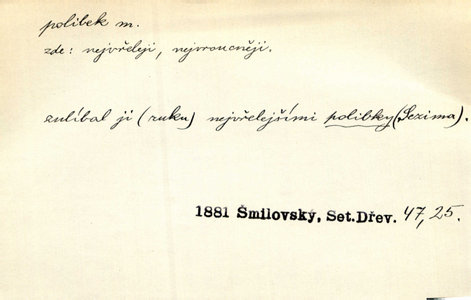 polibek m.
zde: nejvřeleji, nejvroucněji.
zulíbal ji (ruku) nejvřelejšími polibky (Sezima).
1881 Šmilovský, Set.Dřev. 47,25.